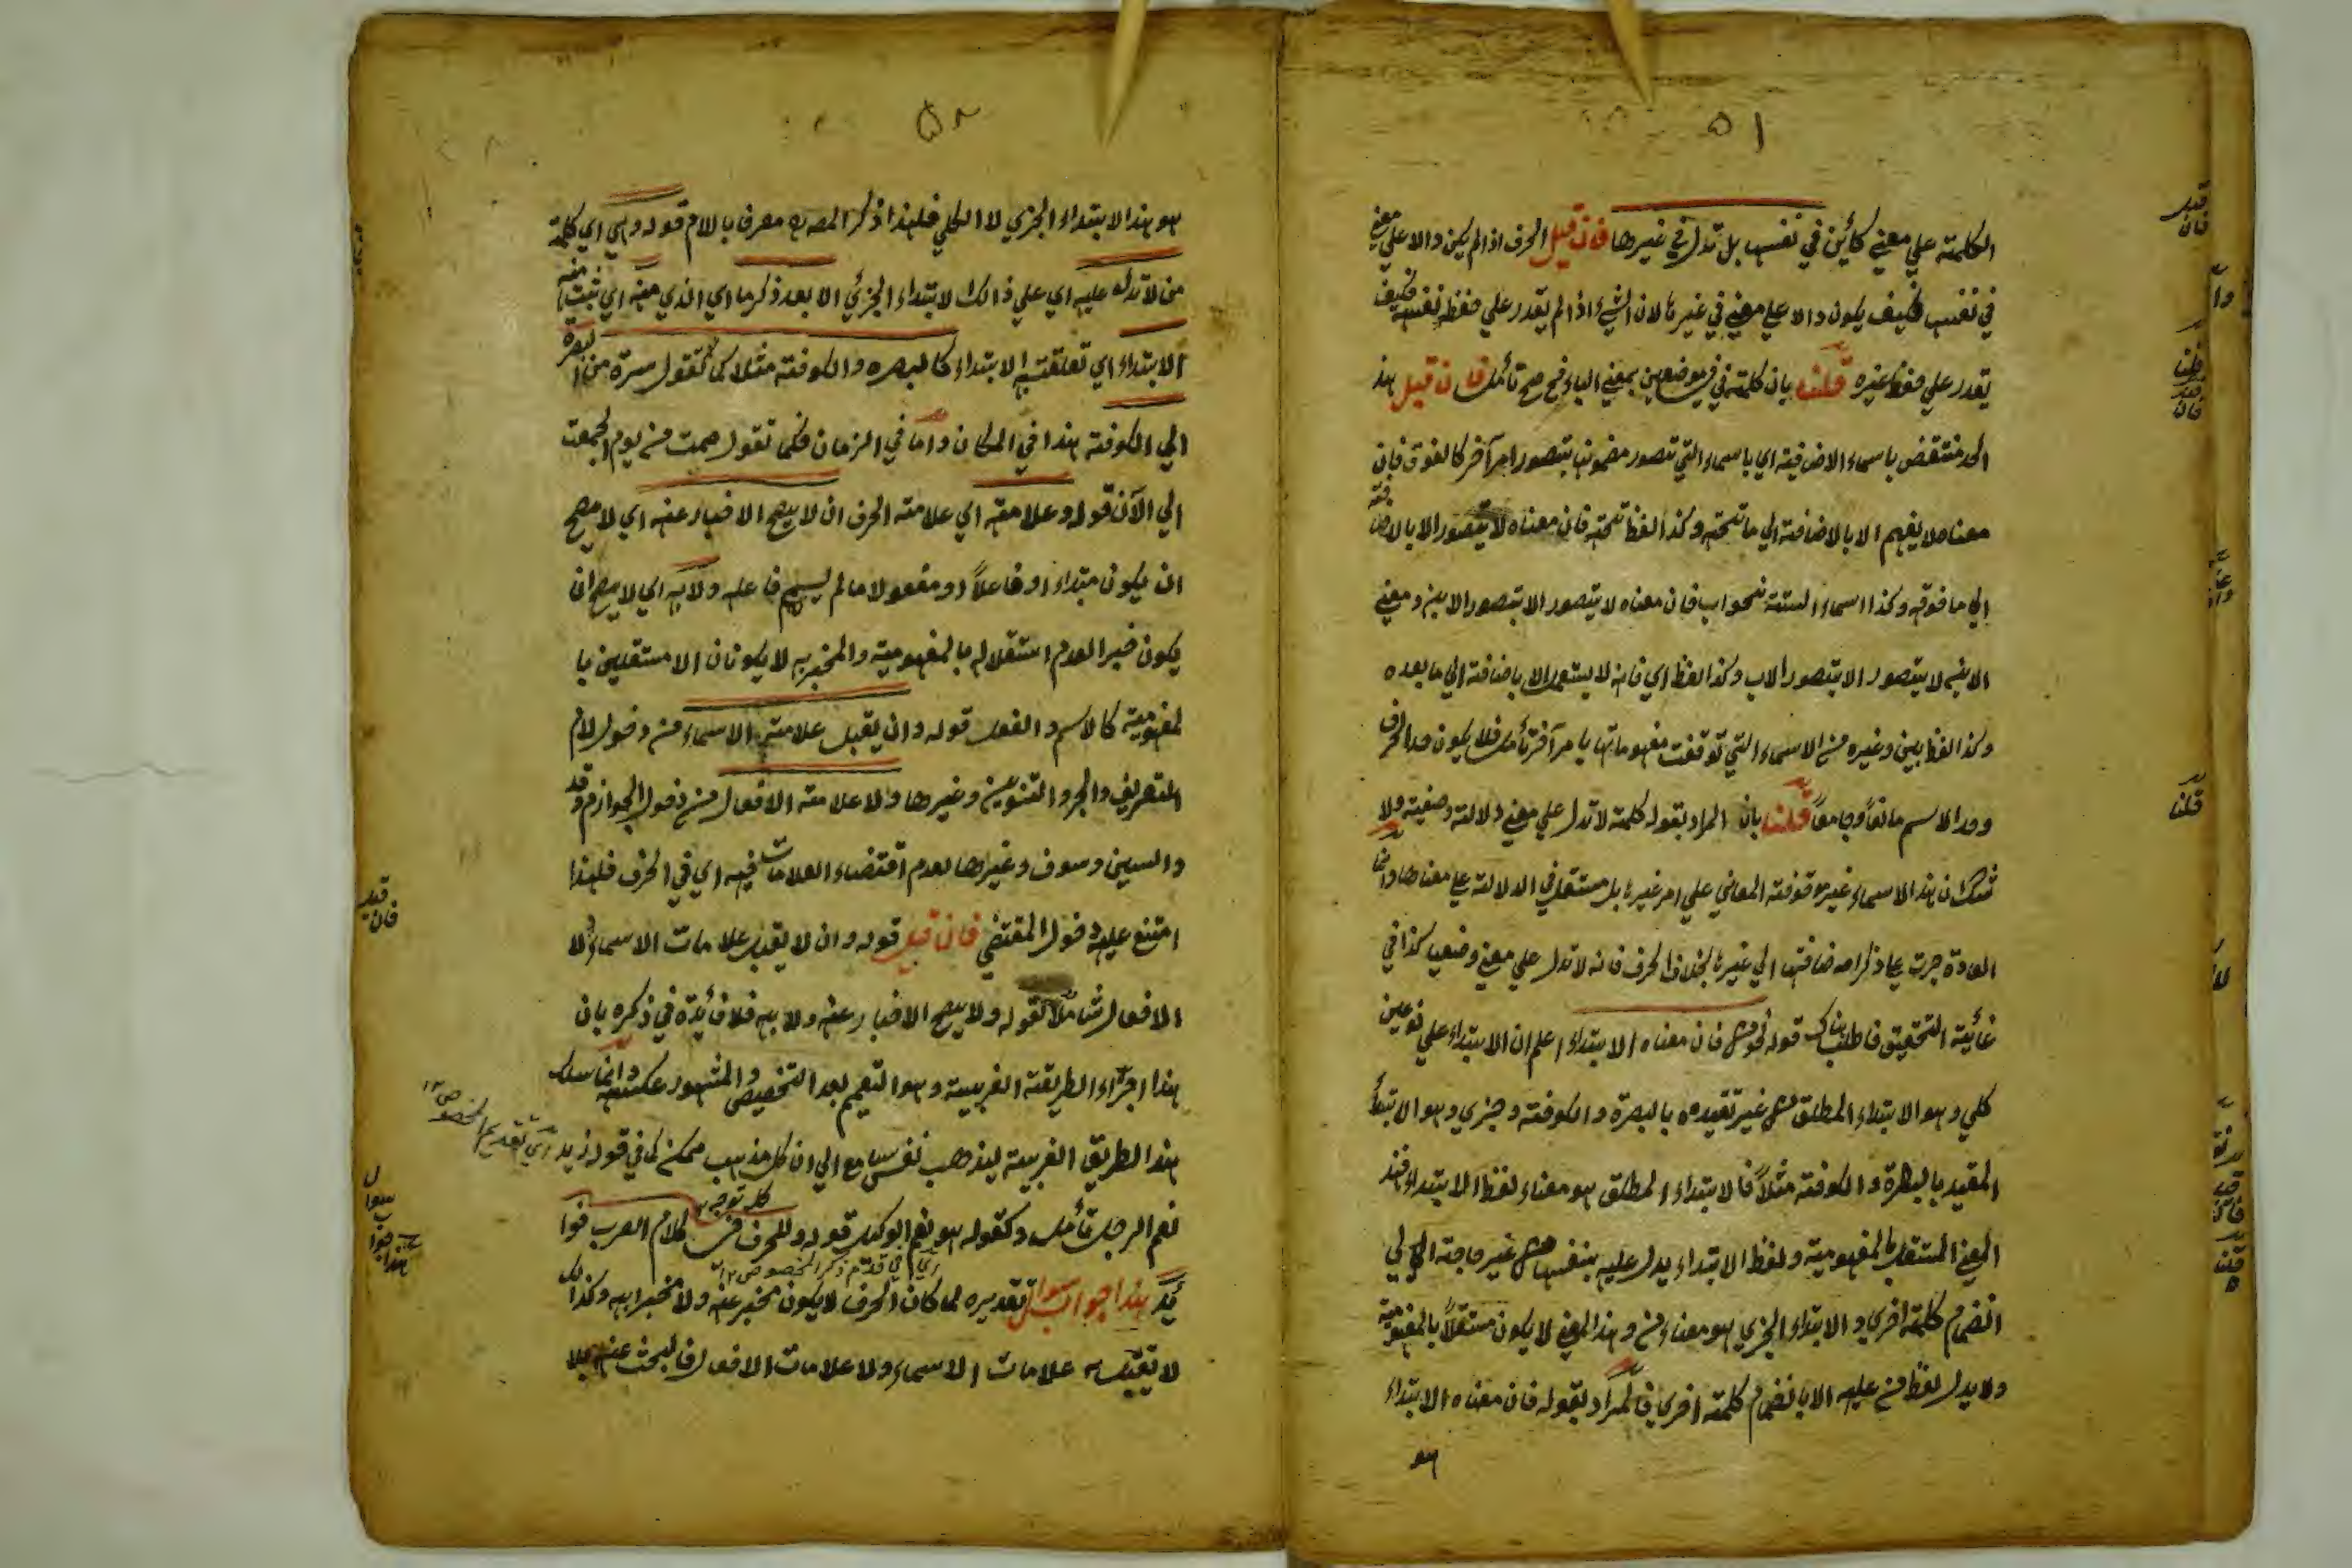 ۵۱
الكلمة علي معني كائن في نفسها بل تدل في غيرها فان قيل الحرف اذا لم يكن دالا علي معني
في نفسها فكيف يكون دالا علي معني في غيرها لان الشيء اذا لم يقدر علي حفظ نفسه فكيف
يقدر علي حفظ غيره قلنا بان كلمة في في موضعين بمعني الباء فح صح تأمل فان قيل هذا
الحد منتقض باسماء الاضافية اي باسماء التي تتصور مضمونها بتصور امر آخر كالفوق فان
معناه لا يفهم الا بالاضافة الي ما تحته وكذا لفظ تحته فان معناه لا يتصور الا بالاضافة
الي ما فوقه وكذا اسماء الستة نحو اب فان معناه لا يتصور الا بتصور الابن ومعني
الابن لا يتصور الا بتصور الاب وكذا لفظ اي فانه لا يستعمل الا باضافة الي ما بعده
وكذا لفظ بين وغيره من الاسماء التي توقفت مفهوماتها بامر آخر تأمل فلا يكون حد الحرف
وحد الاسم مانعاً وجامعاً قلنا بان المراد بقوله كلمة لا تدل علي معني دلالة وضعية ولا
شك ان هذا الاسماء غير موقوفة المعاني علي امر غيرها بل مستقل في الدلالة علي معناها وانما
العادة جرت علي ذكر اضافتها الي غيرها بخلاف الحرف فانه لا تدل علي معني وضعيا كذا في
غاية التحقيق فاطلب هناك قوله نحو من فان معناه الابتداء اعلم ان الابتداء علي نوعين
كلي وهو الابتداء المطلق من غير تقيده بالبصرة والكوفة وجزي وهو الابتداء
المقيد بالبصرة والكوفة مثلاً فالابتداء المطلق هو معناء لفظ الابتداء فهذا
المعني المستقل بالمفهومية ولفظ الابتداء يدل عليه بنفسها من غير حاجة الي
انضمام كلمة اخري والابتداء الجزي هو معناء من وهذا المعني لا يكون مستقلاً بالمفهومية
ولا يدل لفظ من عليه الا بانضمام كلمة اخري فالمراد بقوله فان معناه الابتداء
هو
قيل
فان
قلنا
فان
قلنا
هو هذا الابتداء الجزي لا الكلي فلهذا ذكر المصنف معرفا باللام قوله وهي اي كلمة
من لا تدل عليه اي علي ذالك الابتداء الجزئي الا بعد ذكر ما اي الذي منه اي ثبت منه
الابتداء اي تعلقت به الابتداء كالبصره والكوفة مثلا كما تقول سرت من البصرة
الي الكوفة هذا في المكان واما في الزمان فكما تقول صمت من يوم الجمعة
الي الآن قوله وعلامته اي علامة الحرف ان لا يصح الاخبار عنه اي لا يصح
ان يكون مبتداء او فاعلاً او مفعولا ما لم يسم فاعله ولا به اي لا يصح ان
يكون خبرا لعدم استقلاله بالمفهومية والمخبر به لا يكونان الا مستقلين با
لمفهومية كالاسم والفعل قوله وان لا يقبل علامة الاسماء من دخول لام
التعريف والجر والتنوين وغيرها ولا علامة الافعال من دخول الجوازم وقد
والسين وسوف وغيرها لعدم اقتضاء العلامات فيه اي في الحرف فلهذا
امتنع عليه دخول المقتضي فان قيل قوله وان لا يقبل علامات الاسماء ولا
الافعال شاملاً لقوله ولا يصح الاخبار عنه ولا به فلا فائدة في ذكره بان
هذا اجراء الطريقة الغريبة وهو التعميم بعد التخصيص والمشهور عكسه وانما سلك
هذا الطريق الغريبة ليذهب نفس سامع الي ان كل مذهب ممكن كما في قوله زيد
اي تقديم المخصوص ۱۲
نعم الرجل تأمل وكقوله هو نعم ابوك قوله وللحرف في كلام العرب فوا
اي في تقدم ذكر المخصوص ۱۲
ئد هذا جواب سوال تقديره لما كان الحرف لا يكون مخبر عنه ولا مخبرا به وكذالك
لا تقبل علامات الاسماء ولا علامات الافعال فالبحث عنه بلا
قيل
فان
سوال
هذا جواب